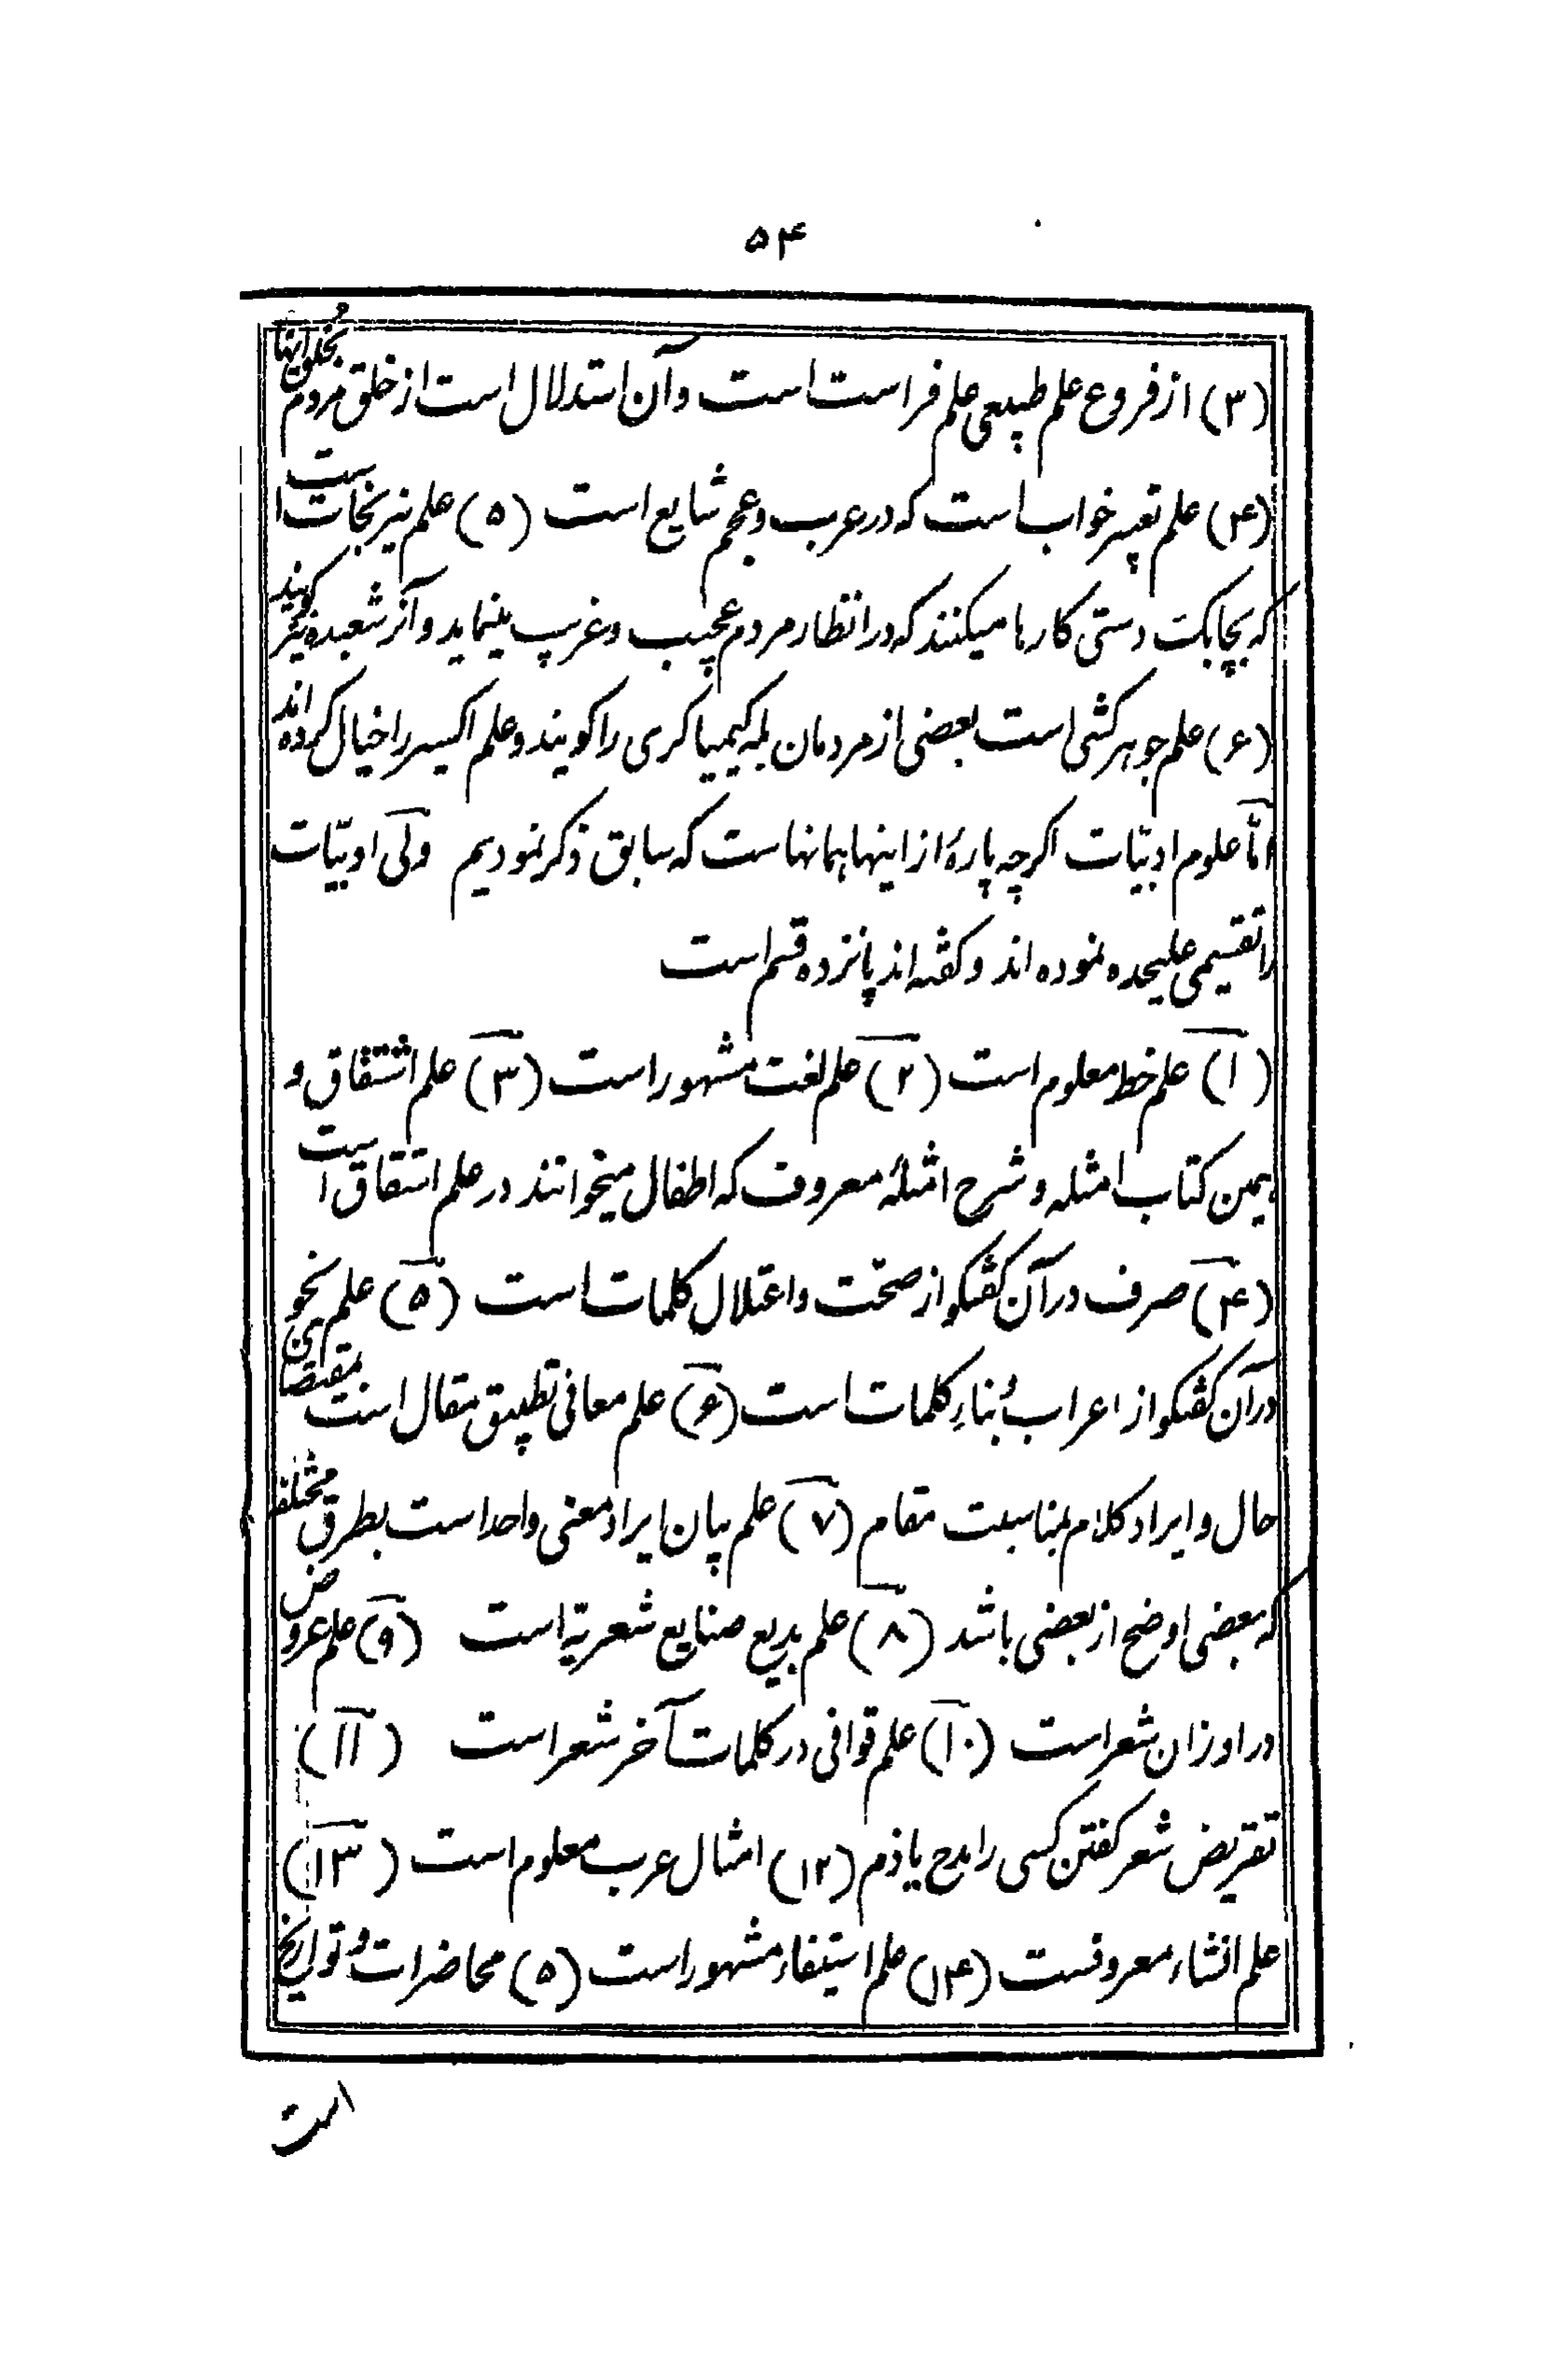 ۵۴
(۳) از فروع علم طبیعی علم فراست است و آن استدلال است از خلق مردم بخُلق آنها
(۴) علم تعبیر خواب است که در عرب و عجم شایع است (۵) علم نیرنجات است
که بچابک دستی کارها میکنند که در انظار مردم عجیب و غریب مینماید و آنرا شعبده نیز کویند
(۶) علم جوهر کشی است بعضی از مردمان بله کیمیا کری را کویند و علم اکسیر را خیال کرده اند
امّا علوم ادبیّات اکرچه پارۀ از اینها همانهاست که سابق ذکر نمودیم ولی ادبیّات
را تقسیمی علیحده نموده اند و کفته اند پانزده قسم است
(۱) علم خط معلوم است (۲) علم لغت مشهور است (۳) علم اشتقاق و
همین کتاب امثله و شرح امثلۀ معروف که اطفال میخوانند در علم اشتقاق است
(۴) صرف در آن کفتکو از صحّت و اعتلال کلمات است (۵) علم نحو
در آن کفتکو از اعراب و بناءِ کلمات است (۶) علم معانی تطبیق مقال است بمقتضای
حال و ایراد کلام بمناسبت مقام (۷) علم بیان ایراد معنی واحد است بطرق مختلفه
که بعضی اوضح از بعضی باشد (۸) علم بدیع صنایع شعریّه است (۹) علم عروض
در اوزان شعر است (۱۰) علم قوافی در کلمات آخر شعر است (۱۱)
تقریض شعر کفتن کسی را بمدح یا ذم (۱۲) امثال عرب معلوم است (۱۳)
علم انشاء معروفست (۱۴) علم استیفاء مشهور است (۵) محاضرات و تواریخ
است